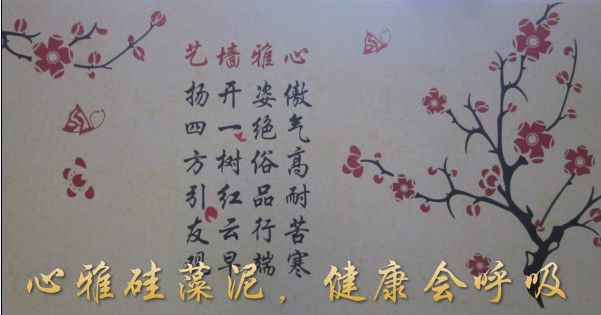 心傲气高耐苦寒
雅姿绝俗品行端
墙开一树红云早
艺扬四方引友观
心雅硅藻泥，健康会呼吸